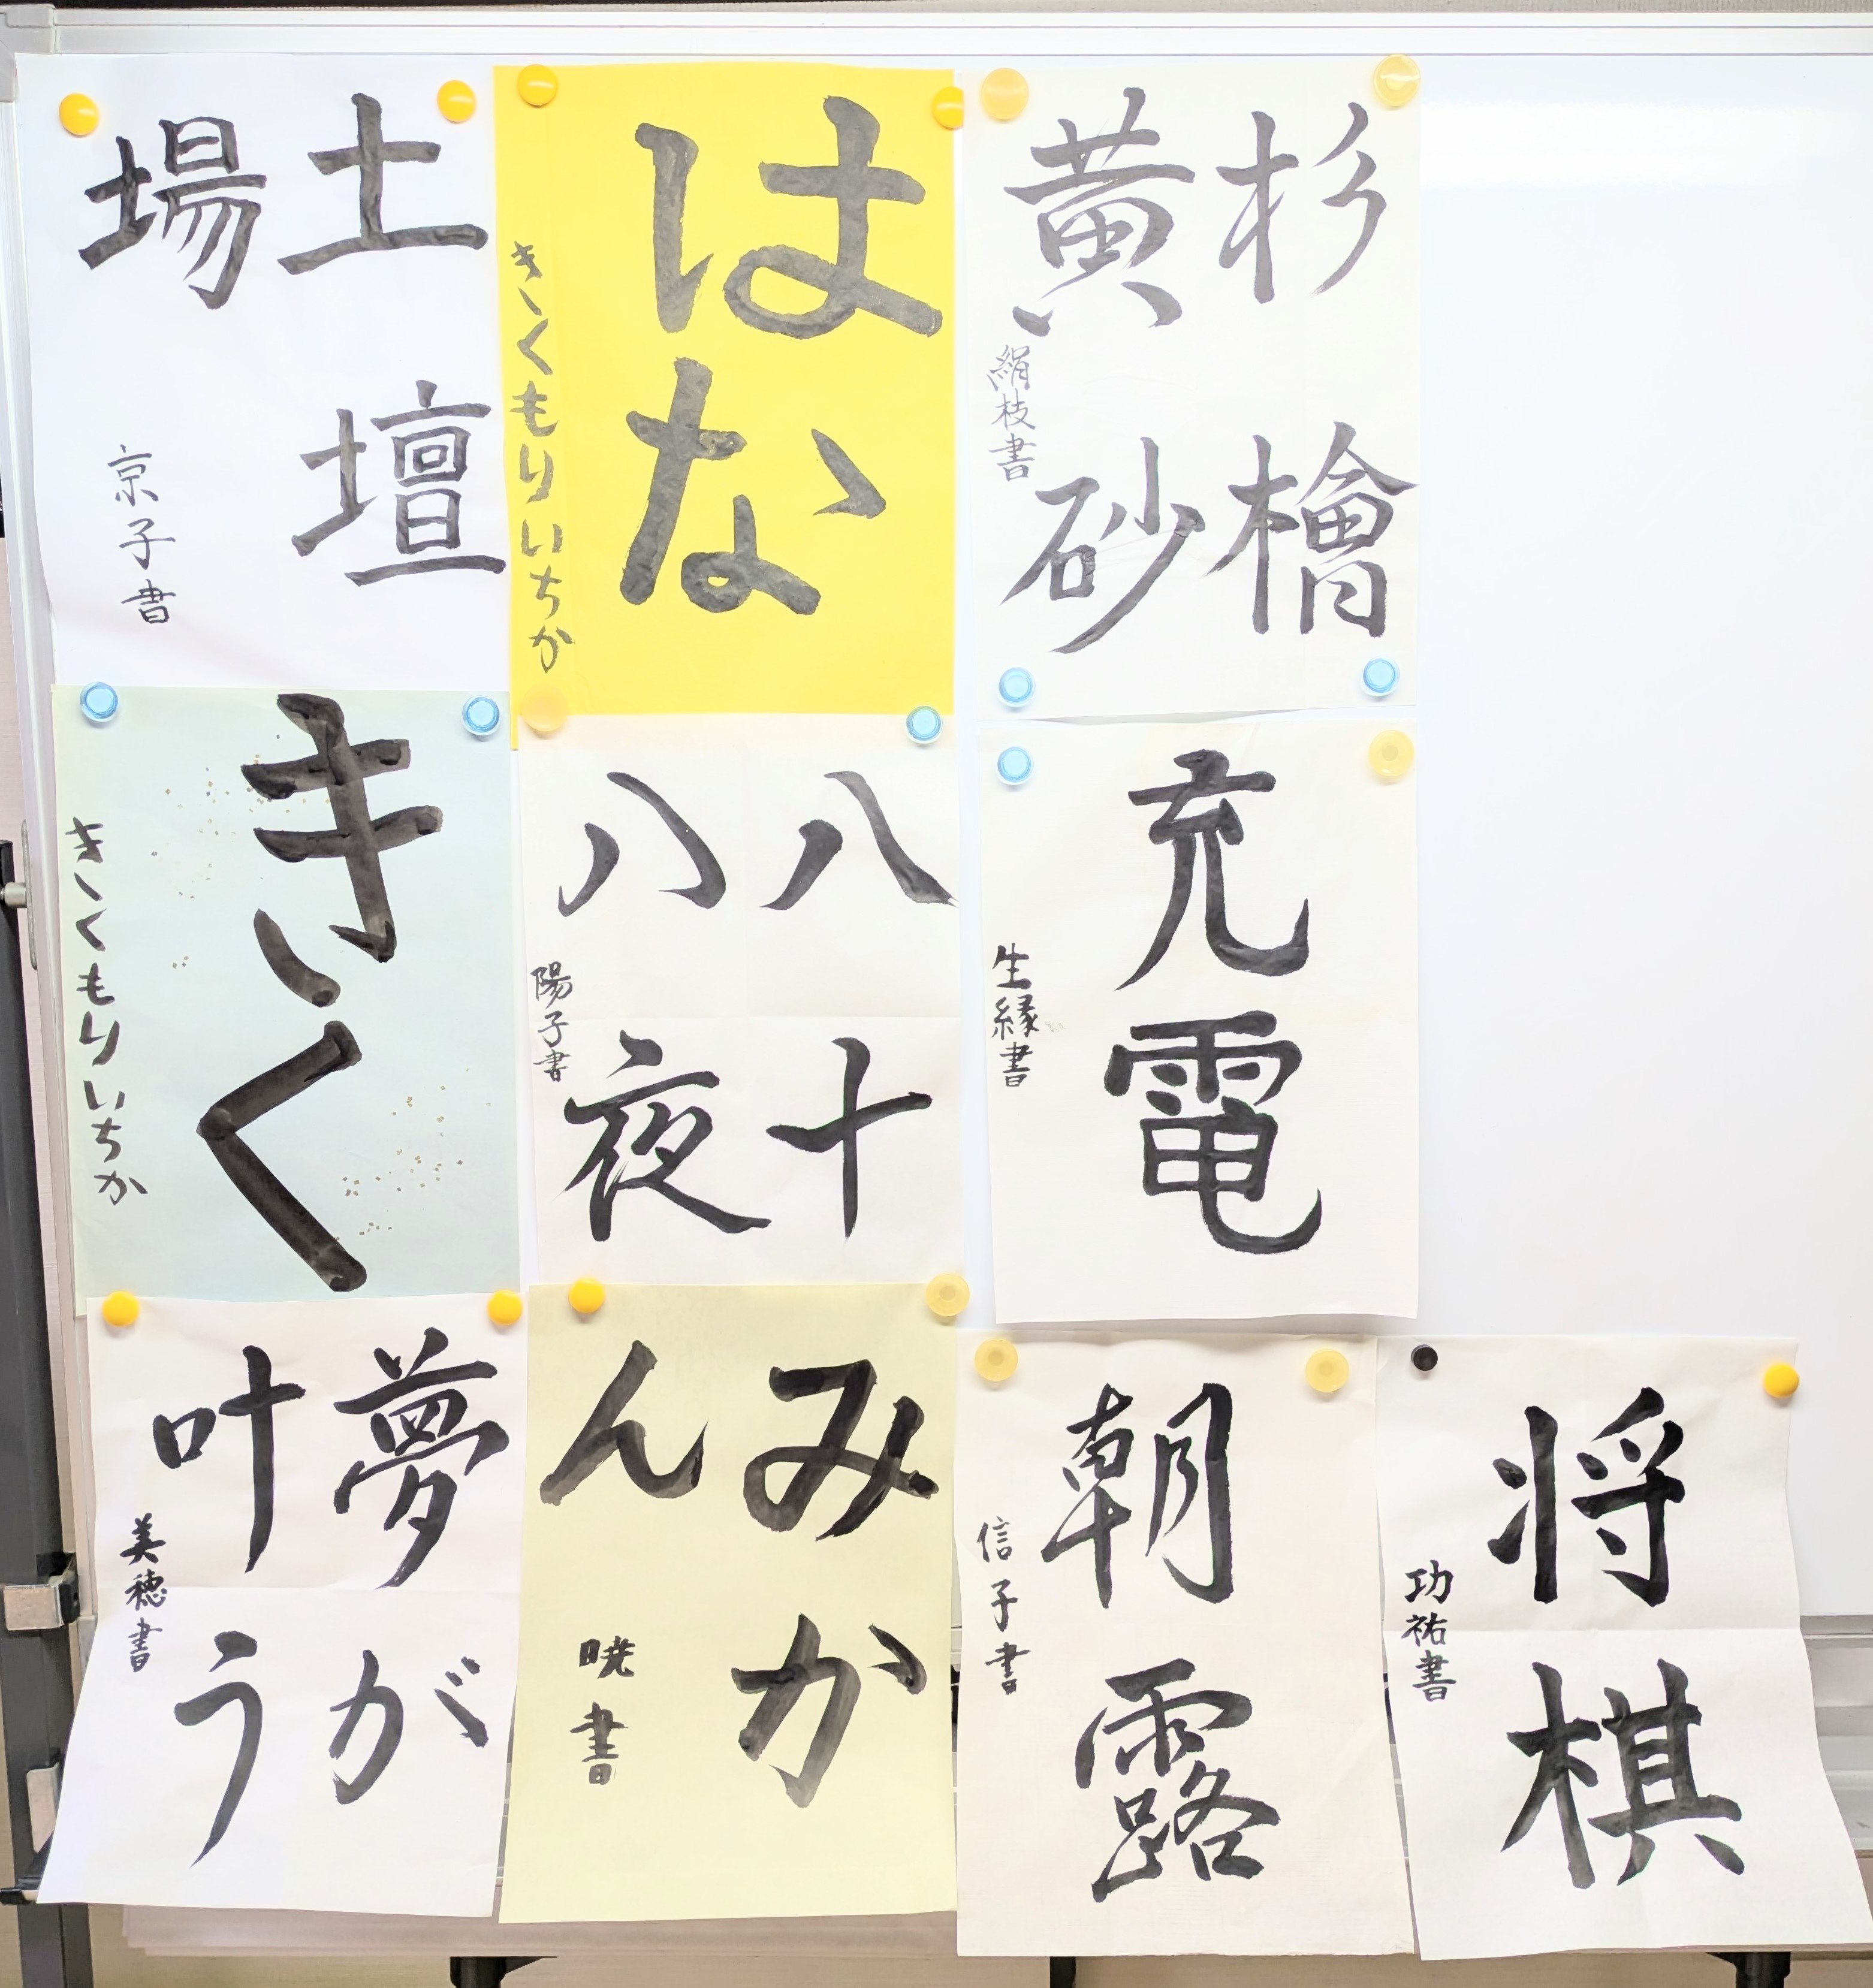 土壇
場
京子書
はな
きくもりいちか
杉檜
黄砂
絹枝書
きく
きくもりいちか
八十
八夜
陽子書
充電
生縁書
夢が
叶う
美穂書
みか
ん
暁書
朝露
信子書
将棋
功祐書